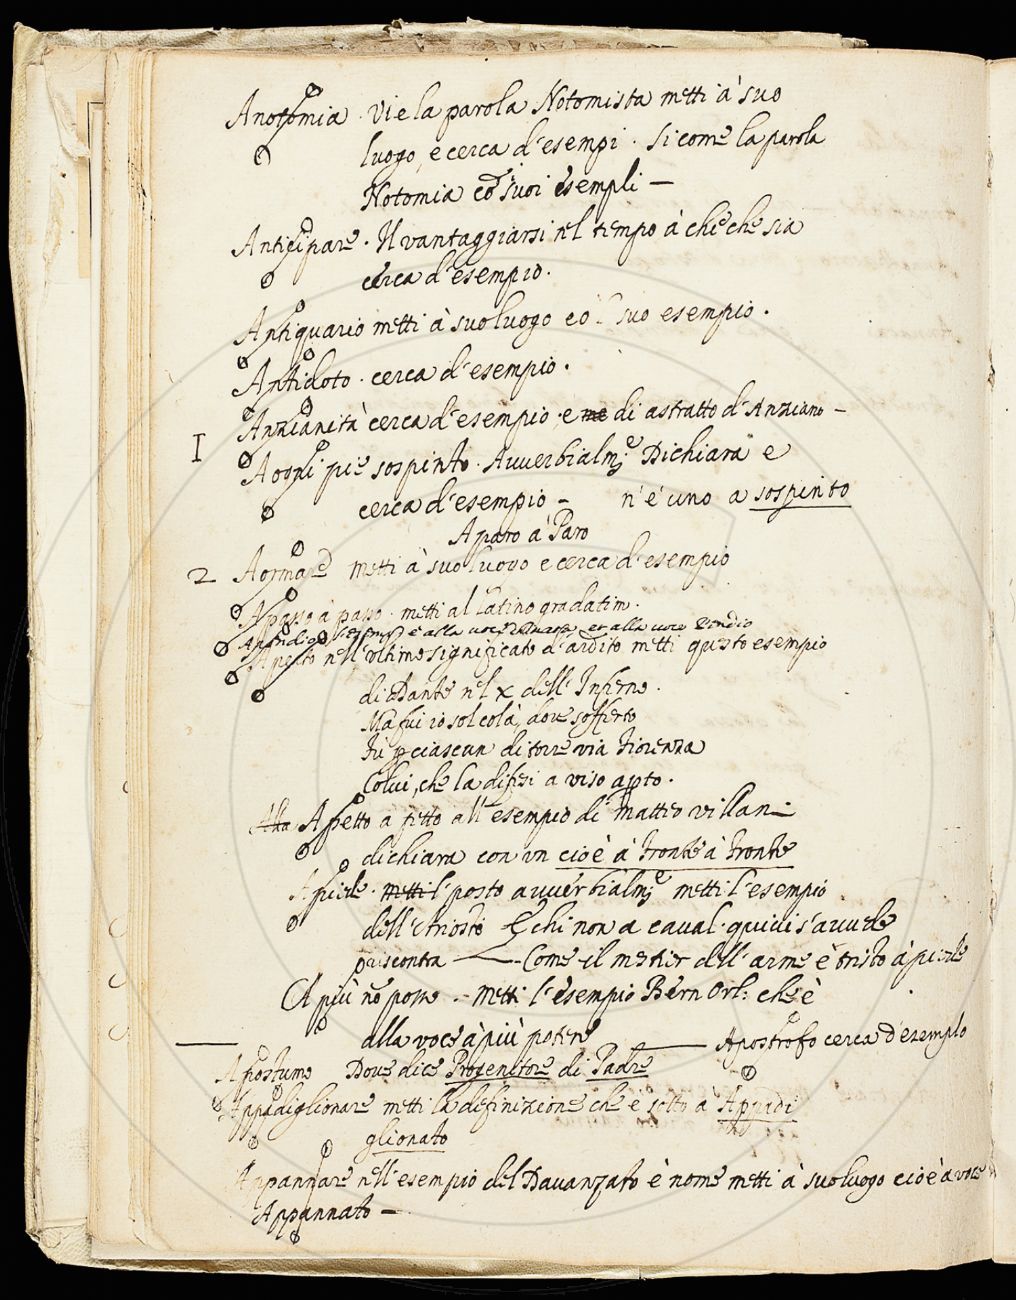 Anotomia. Vi e la parola Notomista metti à suo
luogo, e cerca d'esempi. Si come la parola
Notomia cõ suoi esempli —
Anticipare. Il vantaggiarsi nel tempo à che che sia
cerca d'esempio.
Antiquario metti à suo luogo cõ l suo esempio.
Antidoto. cerca d'esempio.
Anzianità cerca d'esempio. e di astratto d'Anziano —
I A ogni pie sospinto. Avverbialm.e Dichiara e
cerca d'esempio — n'é uno a sospinto
A paro à Paro
2 Aormare metti à suo luogo e cerca d'esempio
A passo a passo. metti al latino gradatim.
alla voce et alla voce Pendio
Aperto nell'ultimo significato d'ardito metti questo esempio
di Dante nel x dell'Inferno.
Ma fui io sol colà, dove sofferto
Fù p ciascun di torre via Fiorenza
Colui, che la difesi a viso apto.
Apetto a petto all'esempio di Matteo Villani
dichiara con un cioè à fronte à fronte
Apiede. metti l' posto avverbialm.e metti l'esempio
dell'Ariosto chi non a caval. quivi s'avvede
riscontra — Come il mestier dell'arme è tristo à piede
A più nõ posso. — Metti l'esempio Bern Orl: che è
alla voce à più potere — Apostrofo cerca d'esemplo
Apostumo Dove dice Progenitore di Padre
Appadiglionare metti la definizione che è sotto à Appadi
glionato
Appannare nell'esempio del Davanzato è nome metti à suo luogo cioè à voce
Appannato —